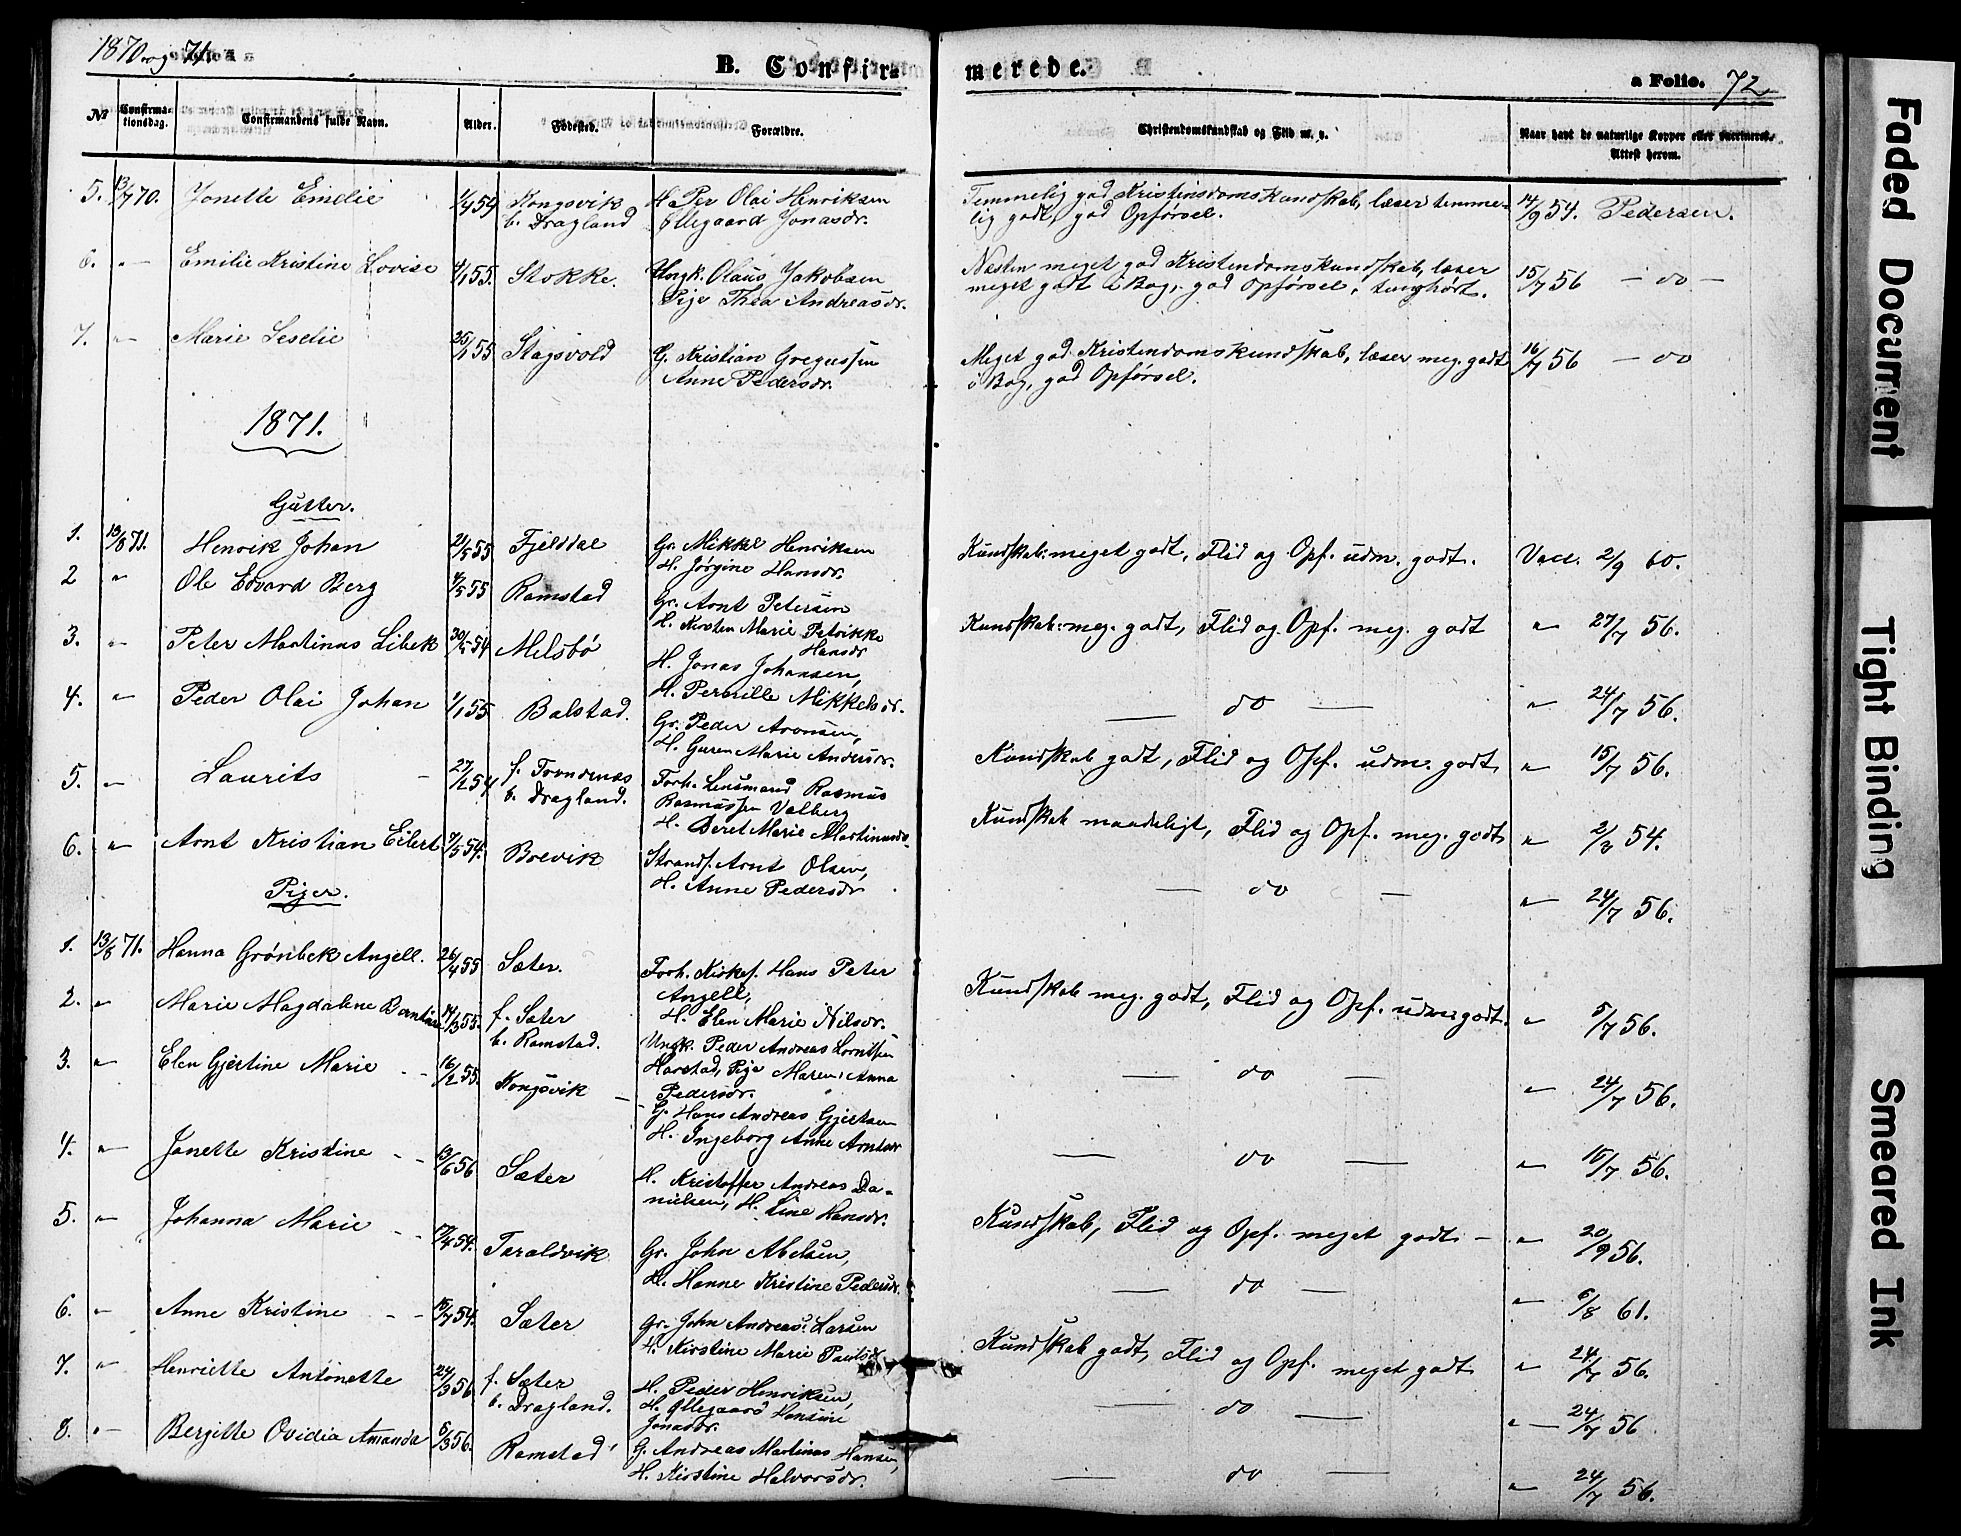 1870 og 71.
B. Confir-
merede.
a Folio. 72
No
Confirma-
tionsdag.
Confirmandens fulde Navn.
Alder.
Fødested.
Forældre.
Christendomskundskab og Flid m. v.
Naar havt de naturlige Kopper eller vaccineret.
Attest herom.
5. 13/7 70. Jonette Emelie 1/4 54 Kongsvik H. Per Olai Henriksen Temmelig god Kristendomskundskab, læser temme- 14/9 54. Pedersen.
b. Dragland Ollegaard Jonasdr. lig godt, god Opførsel.
6. " Emilie Kristine Lovise 4/1 55. Stokke. Ungk. Olaus Jakobsen Næsten meget god Kristendomskundskab, læser 15/7 56 - do -
Pige Thea Andreasdr. meget godt i Bog, god Opførsel, tunghørt.
7. " Marie Leselie 25/1 55 Stagsvold G. Kristian Gregussen Meget god Kristendomskundskab, læser meg. godt 16/7 56 - do
Anne Pedersdr. i Bog, god Opførsel.
1871.
Gutter.
1. 13/8 71. Henrik Johan 21/5 55 Fjelddal Gr. Mikkel Henriksen Kundskab: meget godt, Flid og Opf. udm. godt. Vacc. 2/9 60.
H. Jørgine Hansdr.
2 " Ole Edvard Berg 4/5 55 Ramstad Gr. Arnt Petersen Kundskab: meg. godt, Flid og Opf. meg. godt " 27/7 56.
H. Kirsten Marie Petrikke
Hansdr
3. " Peter Martinus Libek 30/12 54 Melsbø H. Jonas Johansen, do " 24/7 56.
H. Pernille Mikkelsdr.
4. " Peder Olai Johan 1/1 55 Balstad. Gr. Peder Aronsen, Kundskab godt, Flid og Opf. udm. godt " 15/7 56.
H. Guren Marie Andersdr.
5. " Laurits - 27/12 54 f. Trondenæs Forh. Lensmand Rasmus Kundskab maadeligt, Flid og Opf. meg. godt " 2/3 54.
b. Dragland. Rasmussen Valberg
H. Beret Marie Martinusdr
6. " Arnt Kristian Eilert 7/5 54. Brevik Strands. Arnt Olsen, do " 24/7 56.
H. Anne Pedersdr
Piger.
1. 13/8 71. Hanna Grønbek Angell. 26/4 55 Sæter. Forh. Kirkes. Hans Peter Kundskab meg. godt, Flid og Opf. udm. godt. " 5/7 56.
Angell,
H. Elen Marie Nilsdr.
2. " Marie Magdalene Bernt 14/3 55. f. Sæter Ungk. Peder Andreas Lorntsen do " 24/7 56.
b. Ramstad. Harstad, Pige Maren Anna
Pedersdr.
3. " Elen Gjertine Marie 16/2 55. Kongsvik - G. Hans Andreas Gjertsen do " 15/7 56.
H. Ingeborg Anne Arntsdr
4. " Janette Kristine 13/6 56 Sæter H. Kristoffer Andreas Da- Kundskab, Flid og Opf. meget godt - " 20/9 56.
nielsen, H. Line Hansdr.
5. " Johanna Marie 17/4 54. Taraldvik Gr. John Abelsen, do " 6/8 61.
H. Hanne Kristine Pedersdr.
6. " Anne Kristine 15/7 54. Sæter Gr. John Andreas Larsen Kundskab godt, Flid og Opf. meget godt " 24/7 56.
H. Kirstine Marie Paulsdr.
7. " Henriette Antonette 24/3 56 f. Sæter H. Peder Henriksen, do " 24/7 56
b. Dragland. H. Ollegaard Hansine
Jonasdr.
8. " Bergitte Ovidia Amanda 5/3 56. Ramstad G. Andreas Martinus Hansen, do " 24/7 56.
H. Kirstine Halvorsdr.
Faded Document
Tight Binding
Smeared Ink